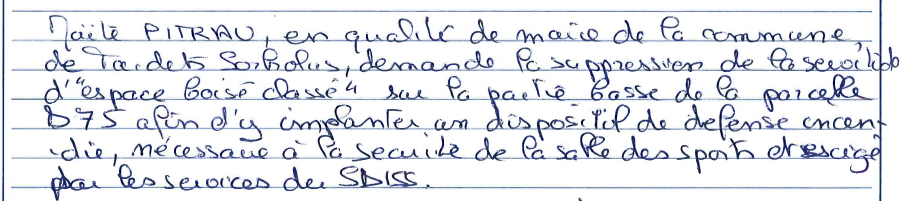 Maïté PITRAU, en qualité de maire de la commune,
de Tardets Sorholus, demande la suppression de la servitude
d'"espace boisé classé" sur la partie basse de la parcelle
D75 afin d'y implanter un dispositif de defense incen-
-die, nécessaire à la sécurité de la salle des sports et exigé
par les services du SDISS.